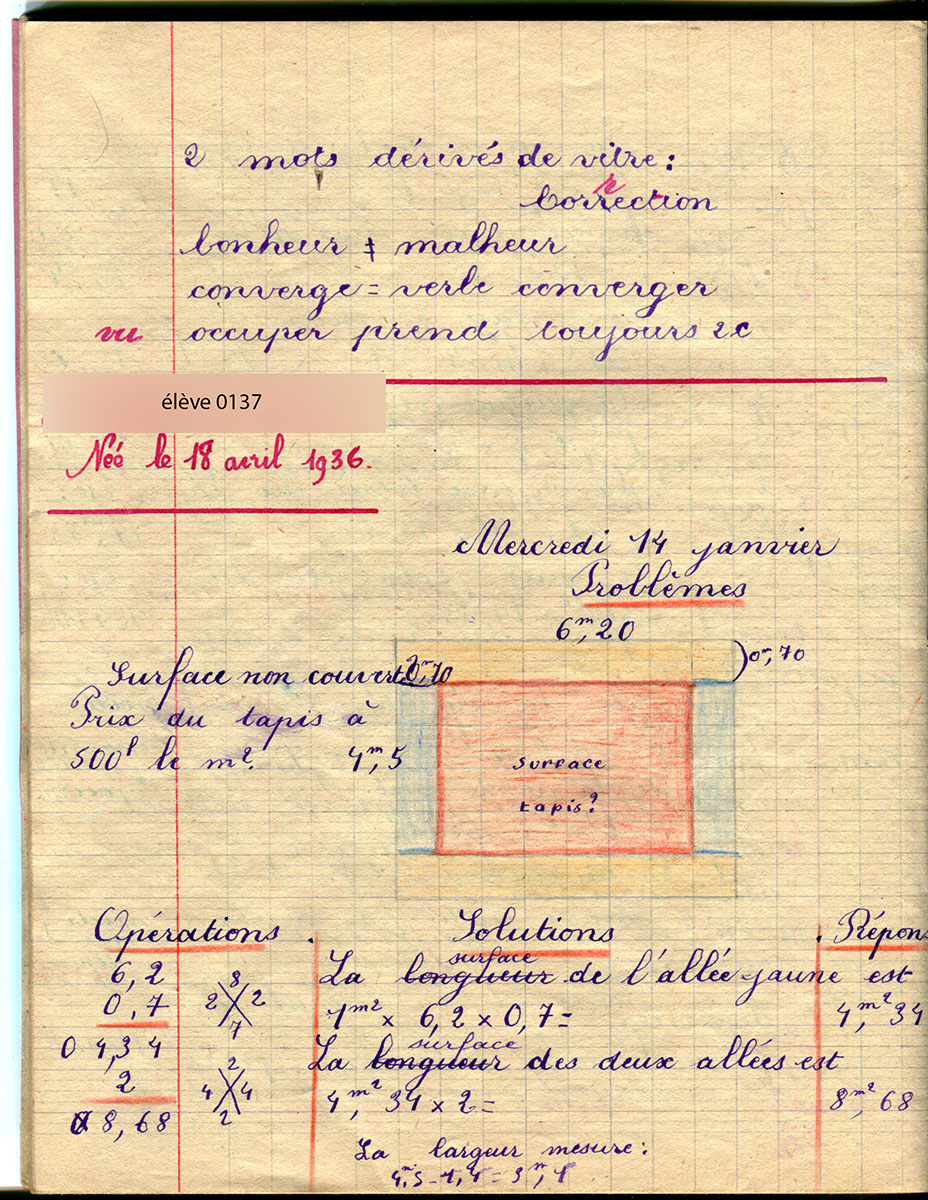 2 mots dérivés de vitre :
Correction
bonheur ≠ malheur
converge = verbe converger
vu occuper prend toujours 2c
élève 0137
Née le 18 avril 1936.
Mercredi 14 janvier
Problèmes
6m,20
0m,70
Surface non couverte? 0m,70
Prix du tapis à
500f le m². 4m,5
surface
tapis?
Opérations . Solutions . Répons
surface
6,2 La longueur de l'allée jaune est
0,7 8 2 2 7 1m² × 6,2 × 0,7 = 4,m²34
surface
0 4,34 La longueur des deux allées est
2 2 4 4 2 4,m²34 × 2 = 8m²,68
08,68
La largeur mesure :
4m,5 - 1,4 = 3m,1